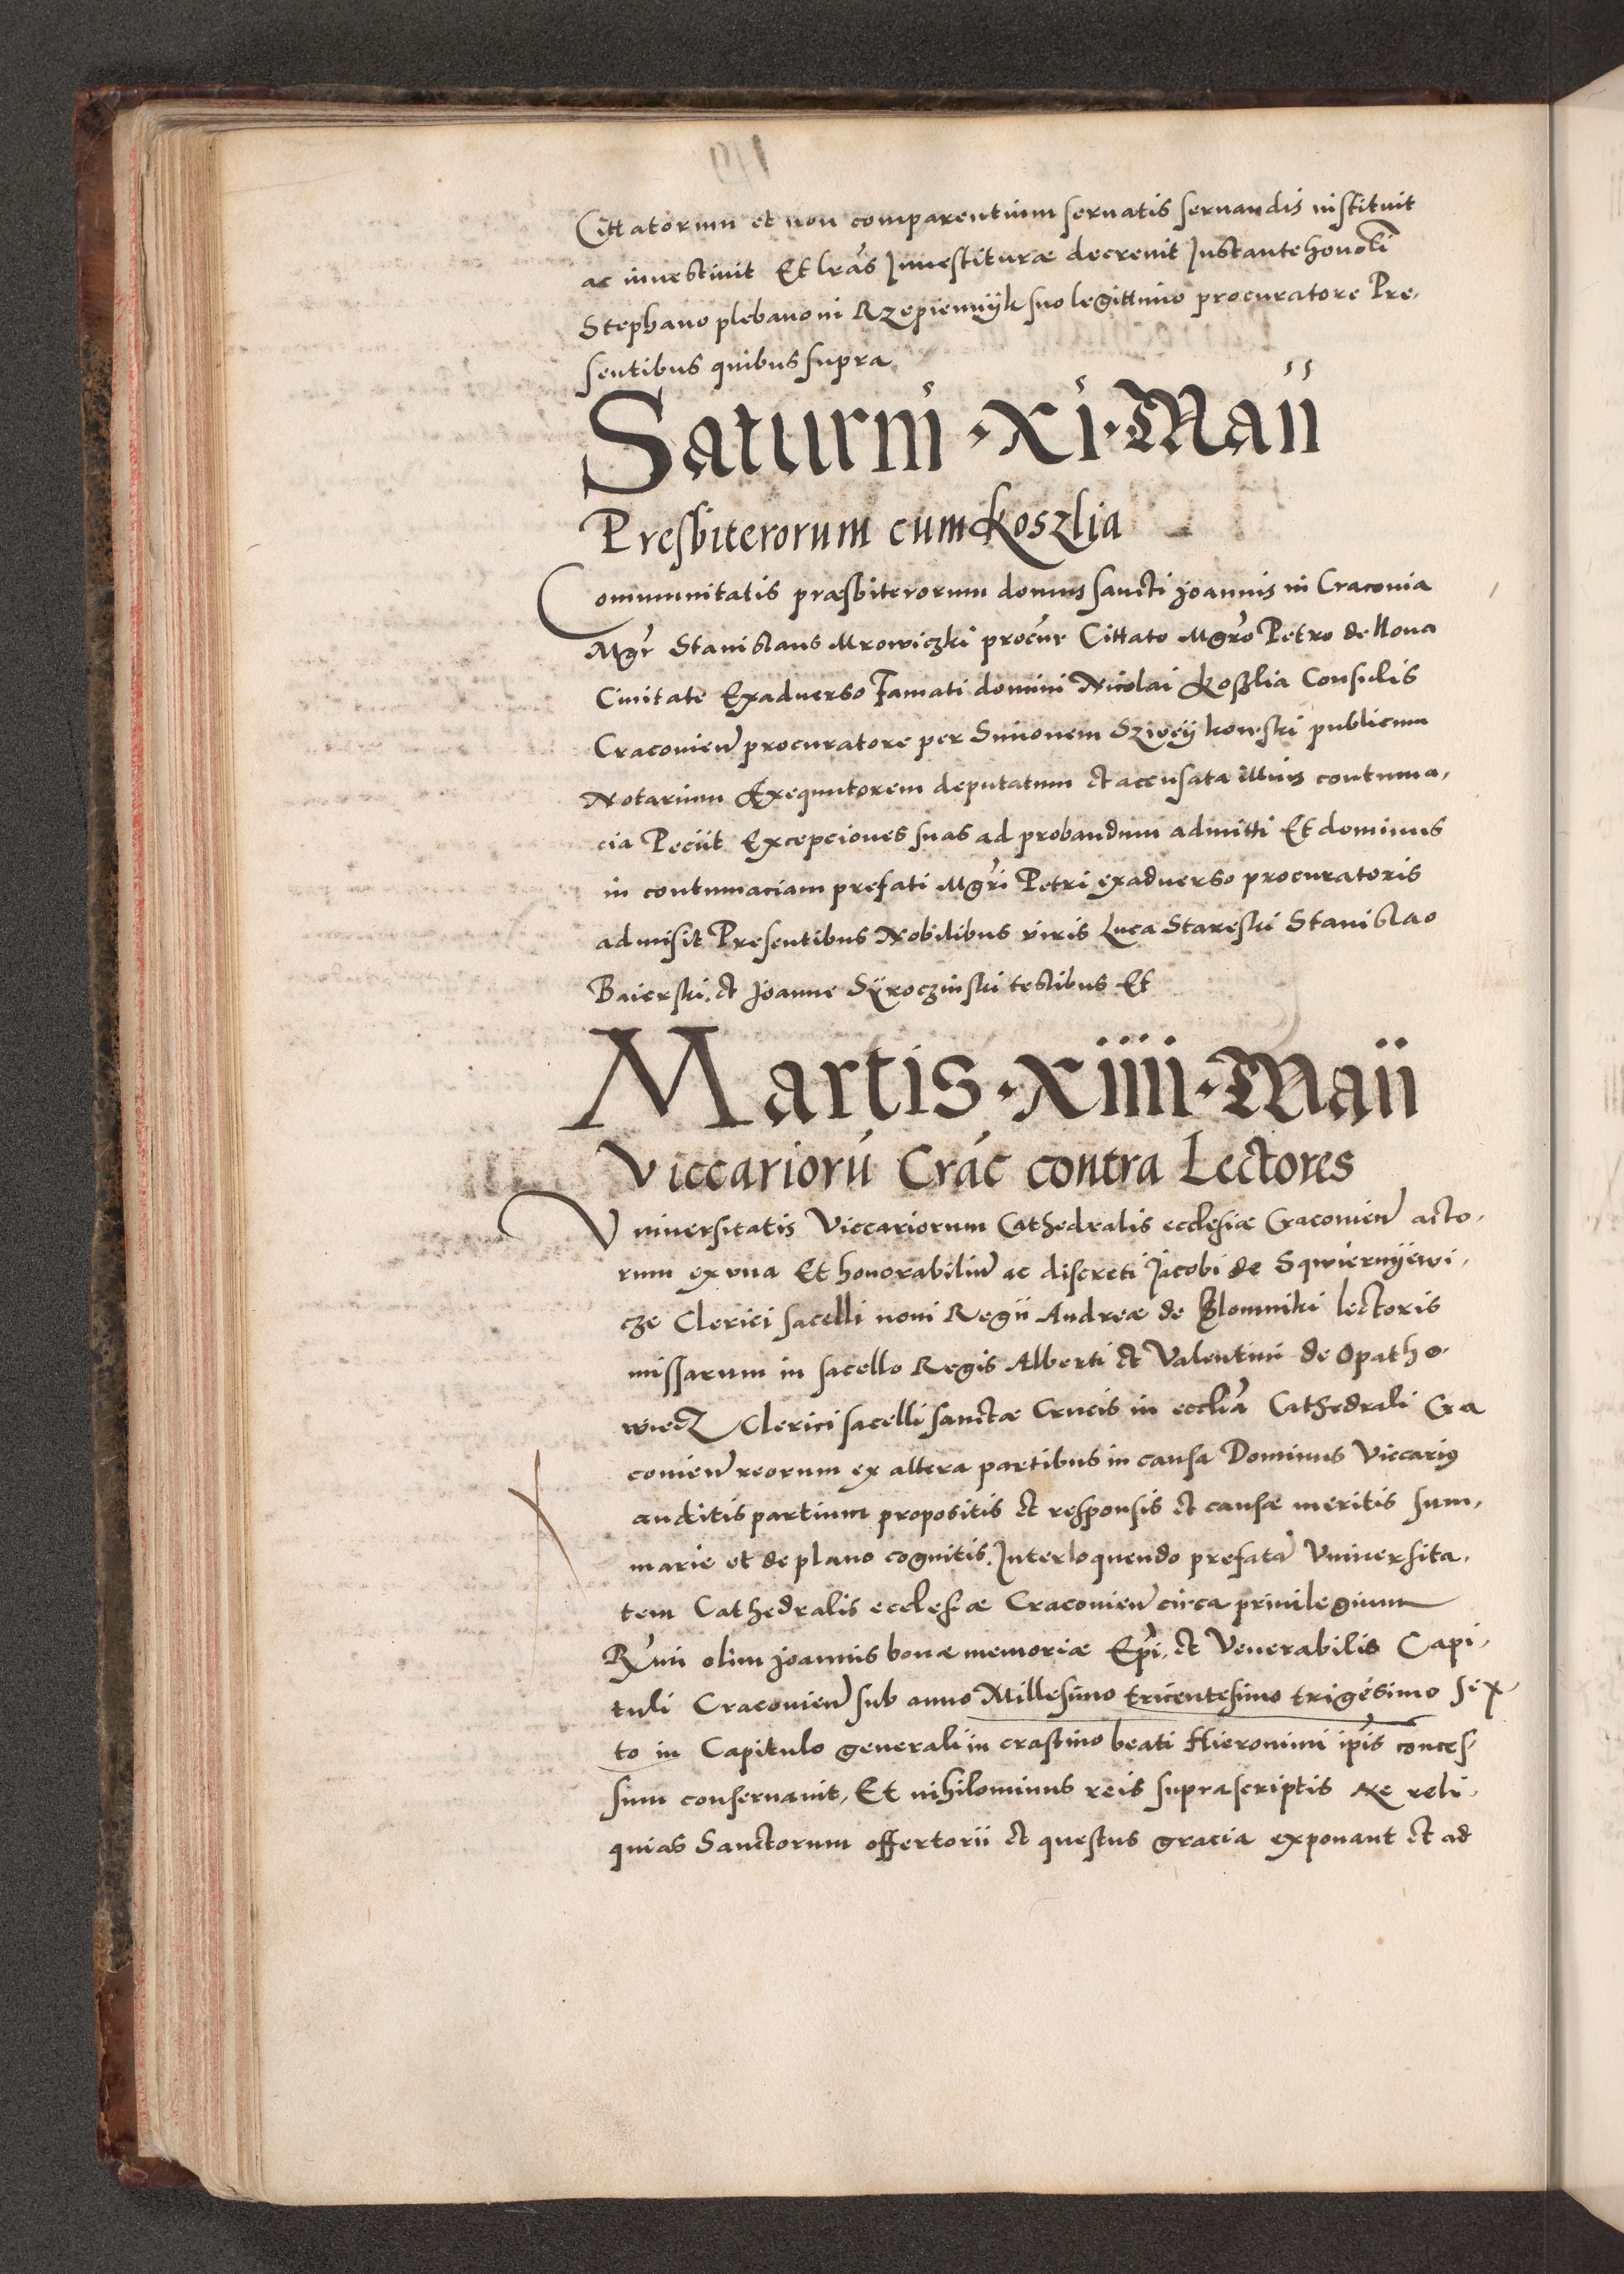 Cittatorum et non comparentium seruatis seruandis instituit
ac inuestiuit Et lras Inuestituræ decreuit Instante honoli
Stephano plebano in Rzepiennijk suo legittimo procuratore Pre,
sentibus quibus supra
Saturni · XI · Maii
Presbiterorum cum Koszlia
Communitatis præsbiterorum domus sancti Joannis in Craconia
Mgr Stanislaus Mrowiczki procur Cittato Mgro Petro de Noua
Ciuitate Exaduerso Famati domini Nicolai Koszlia Consulis
Craconien procuratore per Simonem Szweijkowski publicum
Notarium Exequutorem deputatum et accusata illius contuma,
cia Peciit Excepciones suas ad probandum admitti Et dominus
in contumaciam prefati Mgri Petri exaduerso procuratoris
admisit Presentibus Nobilibus viris Luca Stareski Stanislao
Baierski, et Joanne Syroczinski testibus Et
Martis · XIIII · Maii
Viccarioru Crac contra Lectores
Vniuersitatis Viccariorum Cathedralis ecclesiæ Craconien acto,
rum ex una Et honorabilium ac discreti Jacobi de Sqwiernijewi,
cze Clerici sacelli noui Regii Andreæ de Slomniki lectoris
missarum in sacello Regis Alberti et Valentini de Opatho
wiecz Clerici sacelli sanctæ Crucis in ecclia Cathedrali Cra
conien reorum ex altera partibus in causa Dominus Viccarius
auditis partium propositis et responsis et causæ meritis sum,
marie et de plano cognitis, Interloquendo prefata Vniuersita,
tem Cathedralis ecclesiæ Craconien circa priuilegium
Rmi olim Joannis bonæ memoriæ Epi, et Venerabilis Capi,
tuli Craconien sub anno Millesimo tricentesimo trigesimo sex
to in Capitulo generali in crastino beati Hieronimi ipis conces
sum conseruauit, Et nihilominus reis suprascriptis ne reli,
quias Sanctorum offertorii et questus gracia exponant et ad